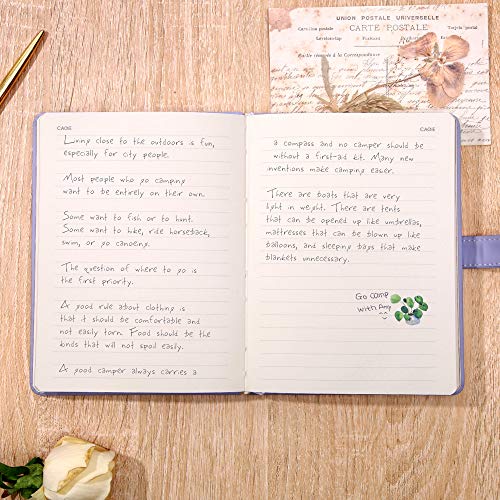 UNION POSTALE UNIVERSELLE
CARTE POSTALE
CAGIE
Living close to the outdoors is fun,
especially for city people.
Most people who go camping
want to be entirely on their own.
Some want to fish or to hunt.
Some want to hike, ride horseback,
swim, or go canoeing.
The question of where to go is
the first priority.
A good rule about clothing is
that it should be comfortable and
not easily torn. Food should be the
kinds that will not spoil easily.
A good camper always carries a
CAGIE
a compass and no camper should be
without a first-aid kit. Many new
inventions make camping easier.
There are boats that are very
light in weight. There are tents
that can be opened up like umbrellas,
mattresses that can be blown up like
balloons, and sleeping bags that make
blankets unnecessary.
Go camp
with Amy